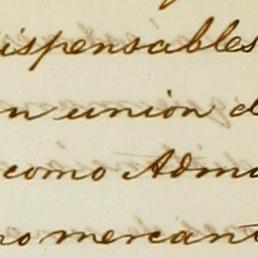 ispensables
n union d
como Adm
no mercant